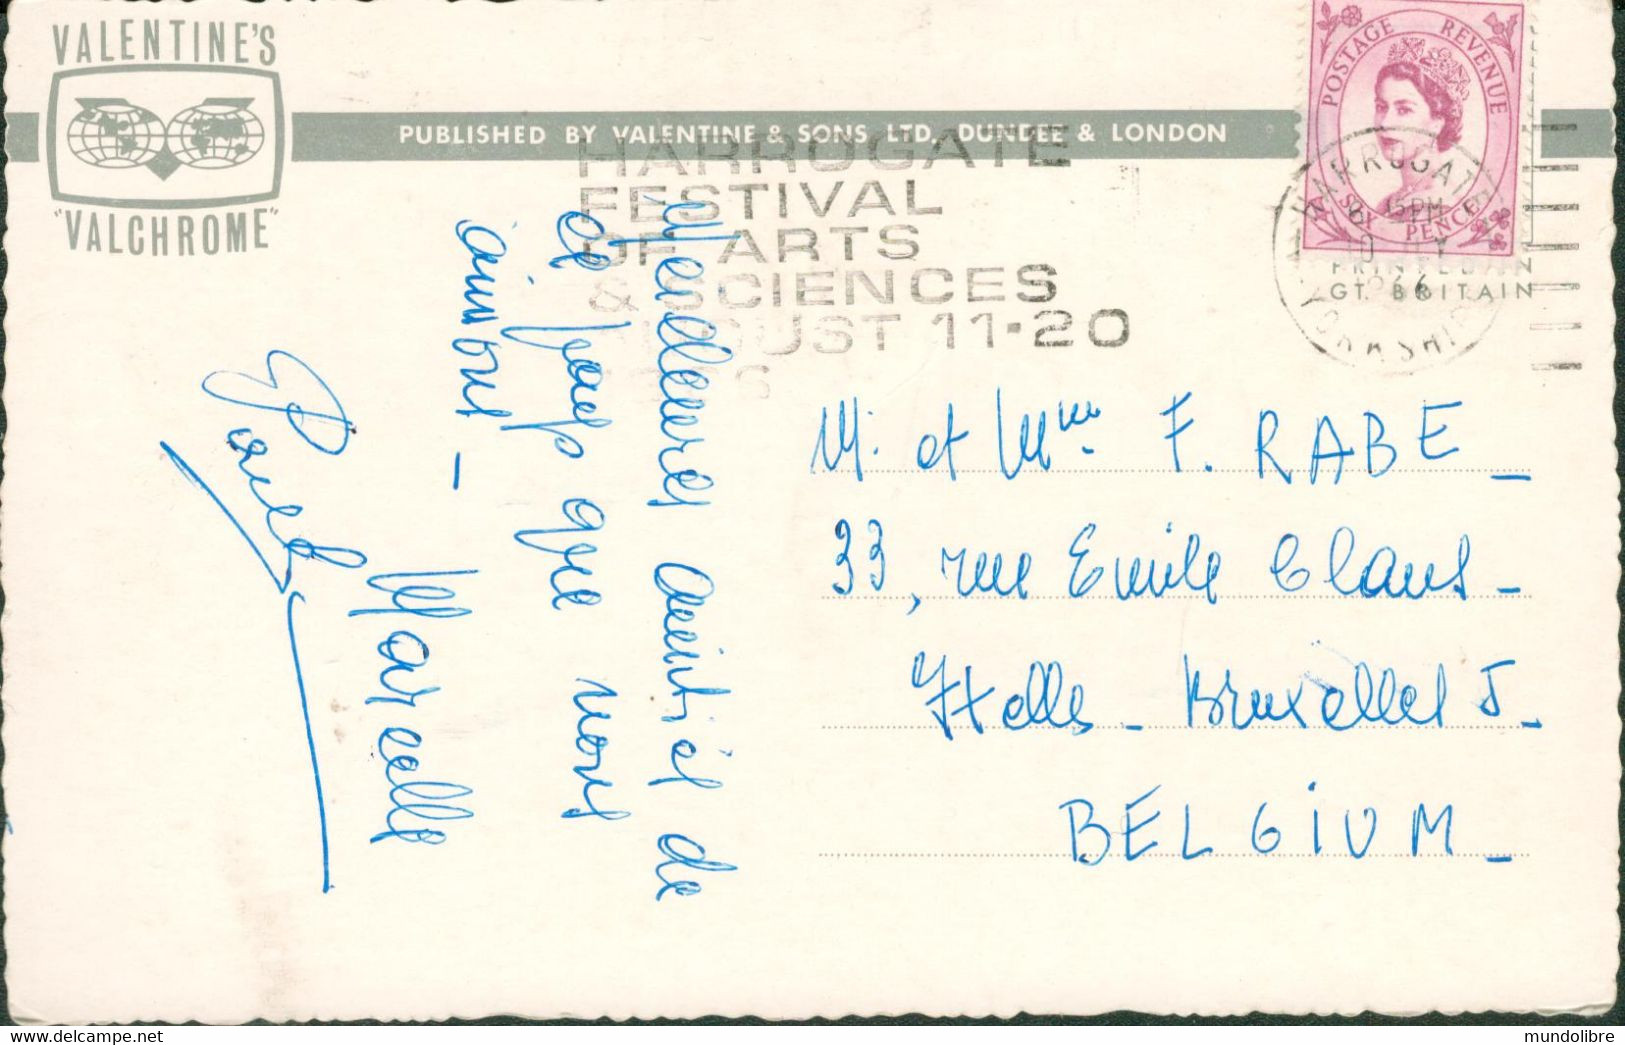 VALENTINE'S
"VALCHROME"
PUBLISHED BY VALENTINE & SONS LTD. DUNDEE & LONDON
POSTAGE REVENUE
SIX PENCE
HARROGATE
YORKSHI
15PM
10
PRINTED IN
GT. BRITAIN
HARROGATE
FESTIVAL
OF ARTS
& SCIENCES
AUGUST 11-20
Meilleures amitiés de
ce pays que nous
aimons -
Marcelle
M. et Mme F. RABE -
33, rue Emile Claus -
Ixelles - Bruxelles 5 -
BELGIUM -
mundolibre